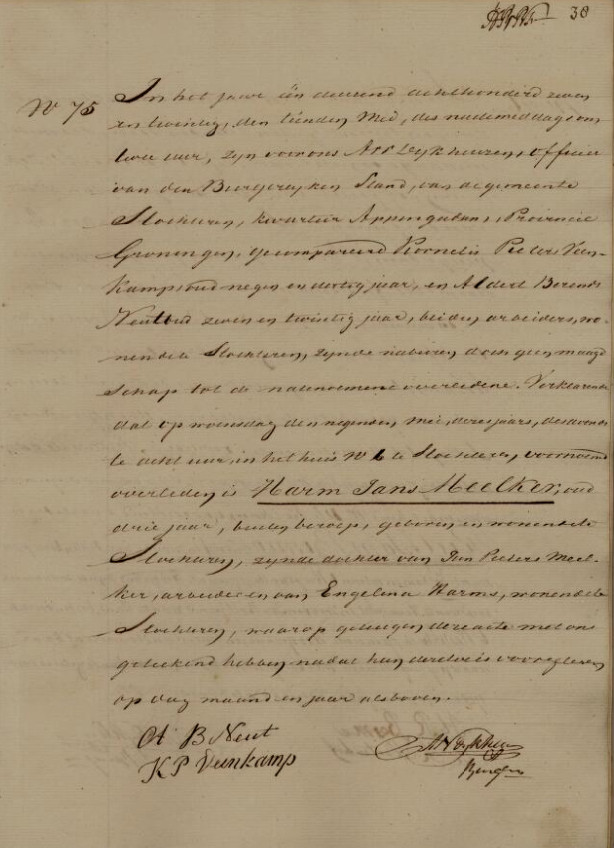 38
N 75
In het jaar één duizend achthonderd zeven
en twintig, den tienden Mei, des nademiddags om
twee uur, zyn voor ons A N Dykhuizen, officier
van den Burgerlyken Stand, van de gemeente
Slochteren, kwartier Appingadam, Provincie
Groningen, gecompareerd Kornelis Pieters Veen-
kamp, oud negen en dertig jaar, en Aldert Berends
Neut, oud zeven en twintig jaar, beiden arbeiders, wo-
nende te Slochteren, zynde naburen doch geen maag-
schap tot de natenoemene overledene. Verklarende
dat op woensdag den negenden Mei, dezes jaars, des avonds
te acht uur, in het huis N 6 te Slochteren voornoemd
overleden is Harm Jans Meelker, oud
drie jaar, buiten beroep, geboren en wonende te
Slochteren, zynde dochter van Jan Pieters Meel-
ker, arbeider en van Engelina Harms, wonende te
Slochteren, waarop getuigen deze acte met ons
geteekend hebben nadat hun dezelve is voorgelezen
op dag maand en jaar als boven.
A B Neut
K P Veenkamp
A N Dykhuizen